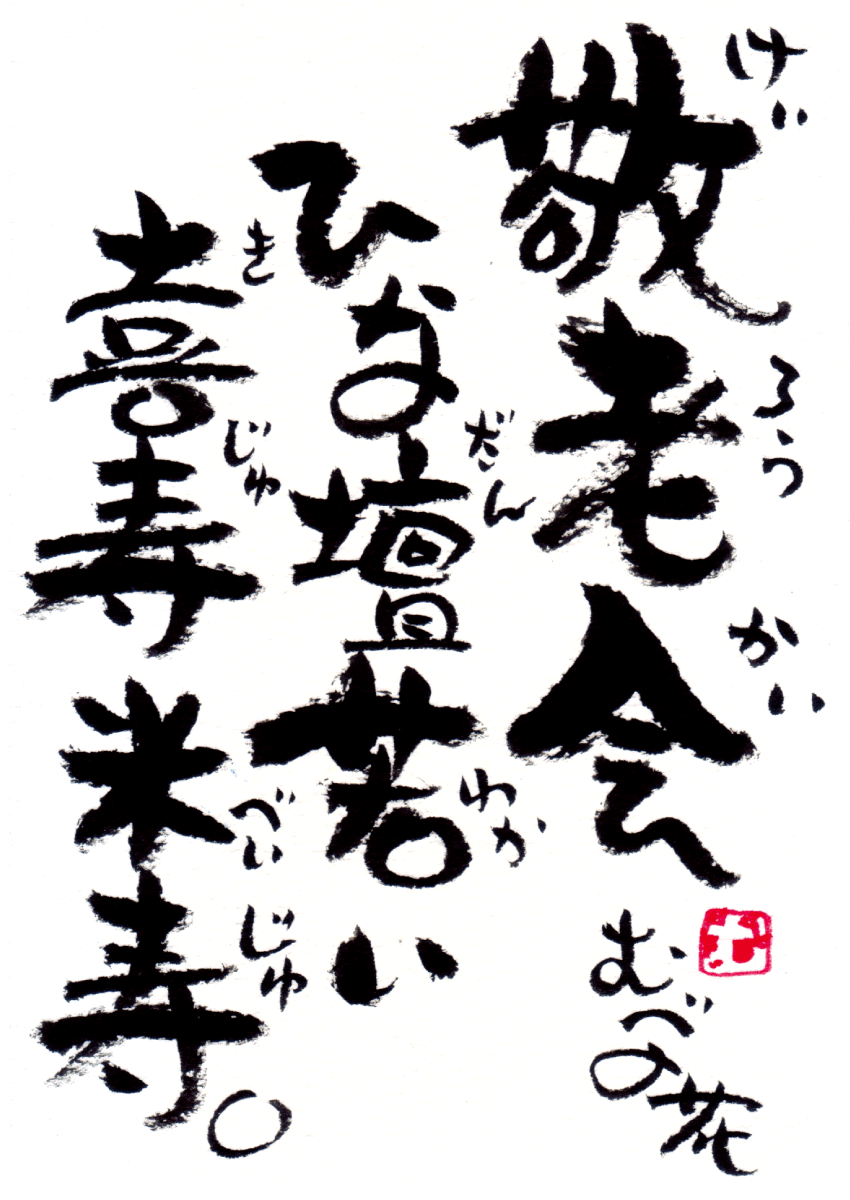 敬老会
けい ろう かい
ひな壇若い
だん わか
喜寿米寿。
き じゅ べい じゅ
むべの花
む